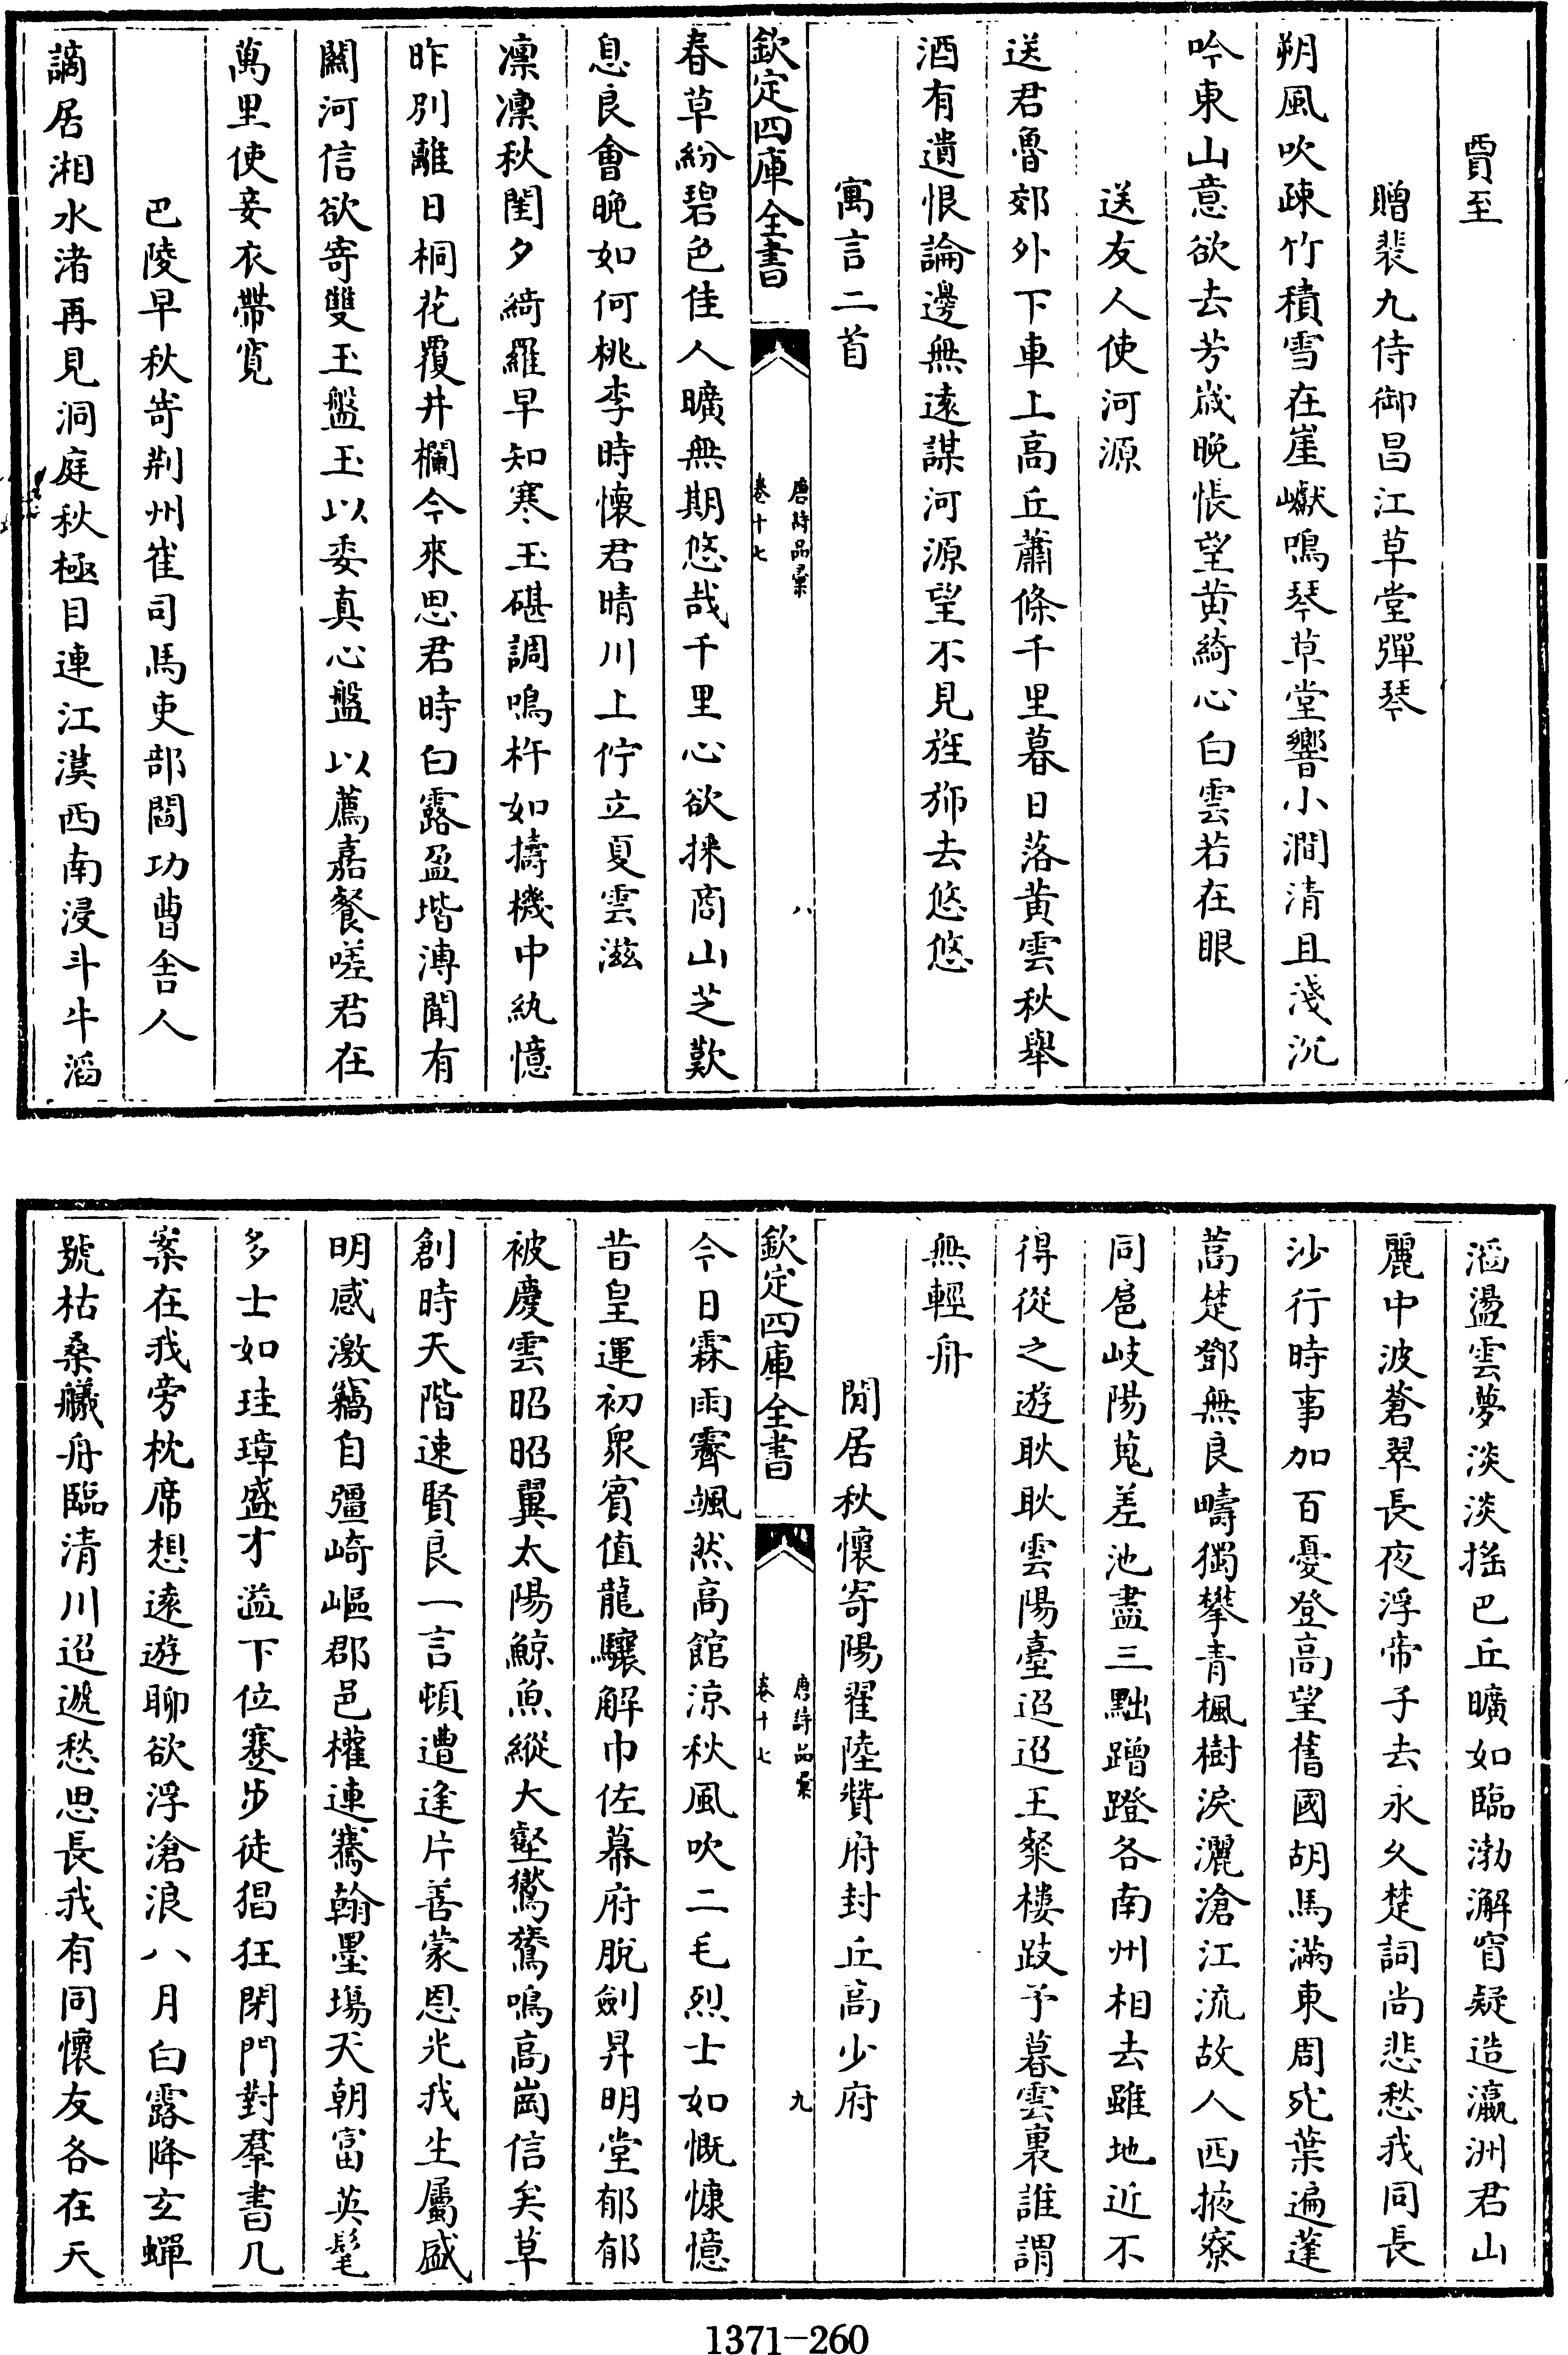 賈至
贈裴九侍御昌江草堂彈琴
朔風吹疎竹積雪在崖巘鳴琴草堂響小澗清且淺沉
吟東山意欲去芳歲晚悵望黄綺心白雲若在眼
送友人使河源
送君魯郊外下車上高丘蕭條千里暮日落黄雲秋舉
酒有遺恨論邊無遠謀河源望不見旌斾去悠悠
寓言二首
欽定四庫全書
唐詩品彙
卷十七
八
春草紛碧色佳人曠無期悠哉千里心欲採商山芝歎
息良會晚如何桃李時懷君晴川上佇立夏雲滋
凛凛秋閨夕綺羅早知寒玉碪調鳴杵如擣機中紈憶
昨別離日桐花覆井欄今來思君時白露盈堦漙聞有
關河信欲寄雙玉盤玉以委真心盤以薦嘉餐嗟君在
萬里使妾衣帶寬
巴陵早秋寄荆州崔司馬吏部閻功曹舍人
謫居湘水渚再見洞庭秋極目連江漢西南浸斗牛滔
滔盪雲夢淡淡揺巴丘曠如臨渤澥窅疑造瀛洲君山
麗中波蒼翠長夜浮帝子去永久楚詞尚悲愁我同長
沙行時事加百憂登高望舊國胡馬滿東周宛葉遍蓬
蒿楚鄧無良疇獨攀青楓樹淚灑滄江流故人西掖寮
同扈岐陽蒐差池盡三黜蹭蹬各南州相去雖地近不
得從之遊耿耿雲陽臺迢迢王粲樓跂予暮雲裏誰謂
無輕舟
閒居秋懷寄陽翟陸贊府封丘高少府
欽定四庫全書
唐詩品彙
卷十七
九
今日霖雨霽颯然高館涼秋風吹二毛烈士如慨慷憶
昔皇運初衆賓值龍驤解巾佐幕府脫劍昇明堂郁郁
被慶雲昭昭翼太陽鯨魚縱大壑鸑鷟鳴高崗信矣草
創時天階速賢良一言頓遭逢片善蒙恩光我生屬盛
明感激竊自彊崎嶇郡邑權連騫翰墨場天朝富英髦
多士如珪璋盛才溢下位蹇步徒猖狂閉門對羣書几
案在我旁枕席想遠遊聊欲浮滄浪八月白露降玄蟬
號枯桑艤舟臨清川迢遞愁思長我有同懷友各在天
1371-260